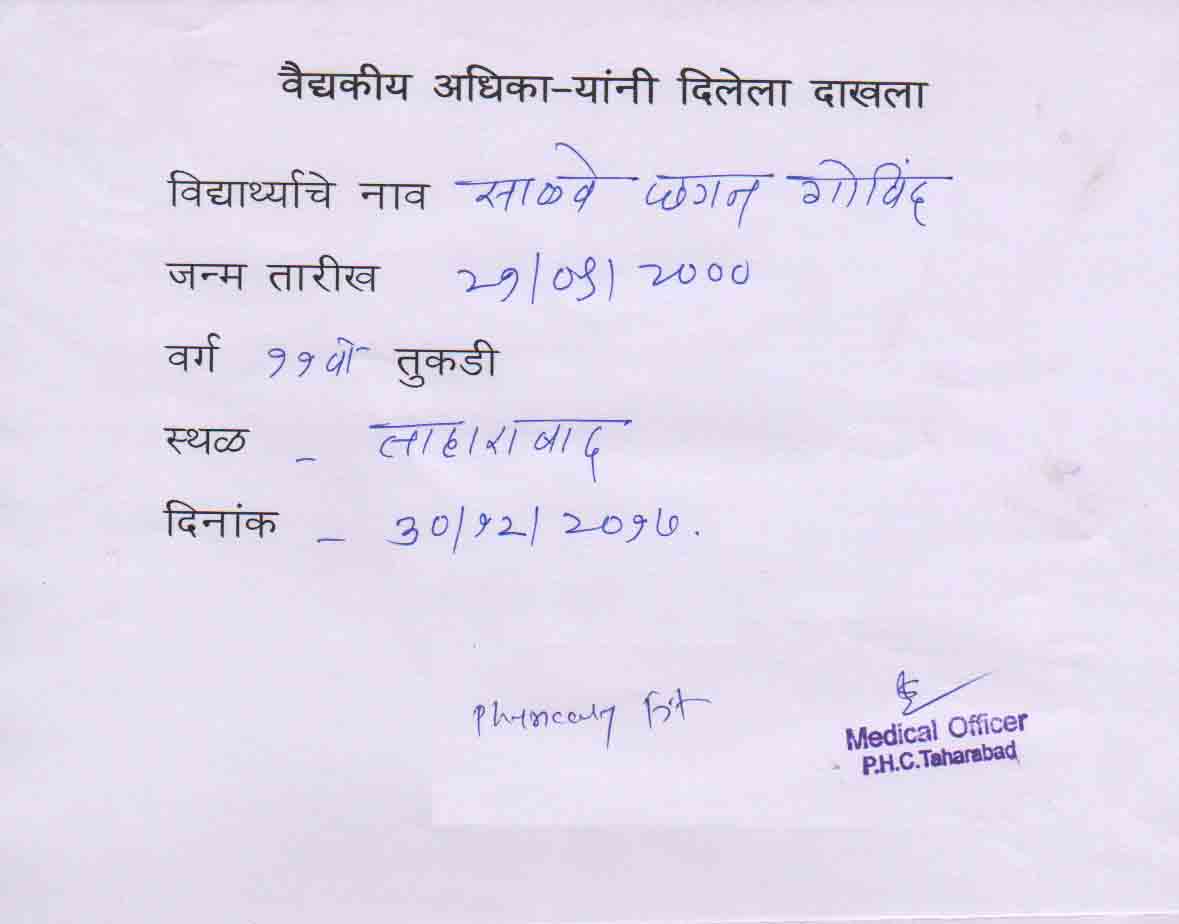 वैद्यकीय अधिका-यांनी दिलेला दाखला
विद्यार्थ्याचे नाव साळवे छगन गोविंद
जन्म तारीख २१/०५/२०००
वर्ग ११वी तुकडी
स्थळ - ताहाराबाद
दिनांक - ३०/१२/२०१७.
Physically fit
Medical Officer
P.H.C.Taharabad